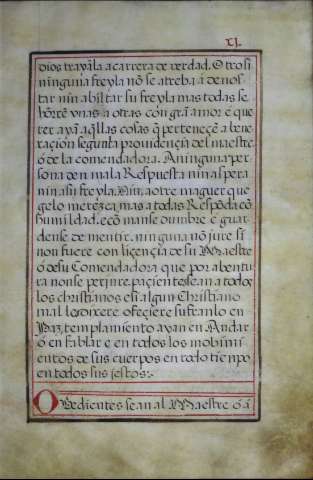 XI.
dios trayala a carrera de verdad. Otro si
ninguna freyla nõ se atreba a denos
tar nin abiltar su freyla mas todas se
hõrrẽ vnas a otras con grã amor e que
rer ayã aq̃llas cosas q̃ perteneçẽ a bene
raçion segunt la providençia del maestre
o de la comendadora. A ninguna per
sona den mala Respuesta nin aspera
nin a su freyla. Nin a otre maguer que
gelo merezca, mas a todas Respõda cõ
humildad. e cõ manse dumbre e guar
dense de mentir. ninguna nõ jure si
non fuere con liçençia de su Maestre
o de su Comendadora que por abentu
ra non se perjure. paçientes sean a todos
los christianos e si algun Christiano
mal les dixere o feçiere sufranlo en
Paz, templamiento ayan en Andar
o en fablar e en todos los mobimi
entos de sus cuerpos en todo tienpo
en todos sus jestos:-
Obedientes sean al Maestre o a